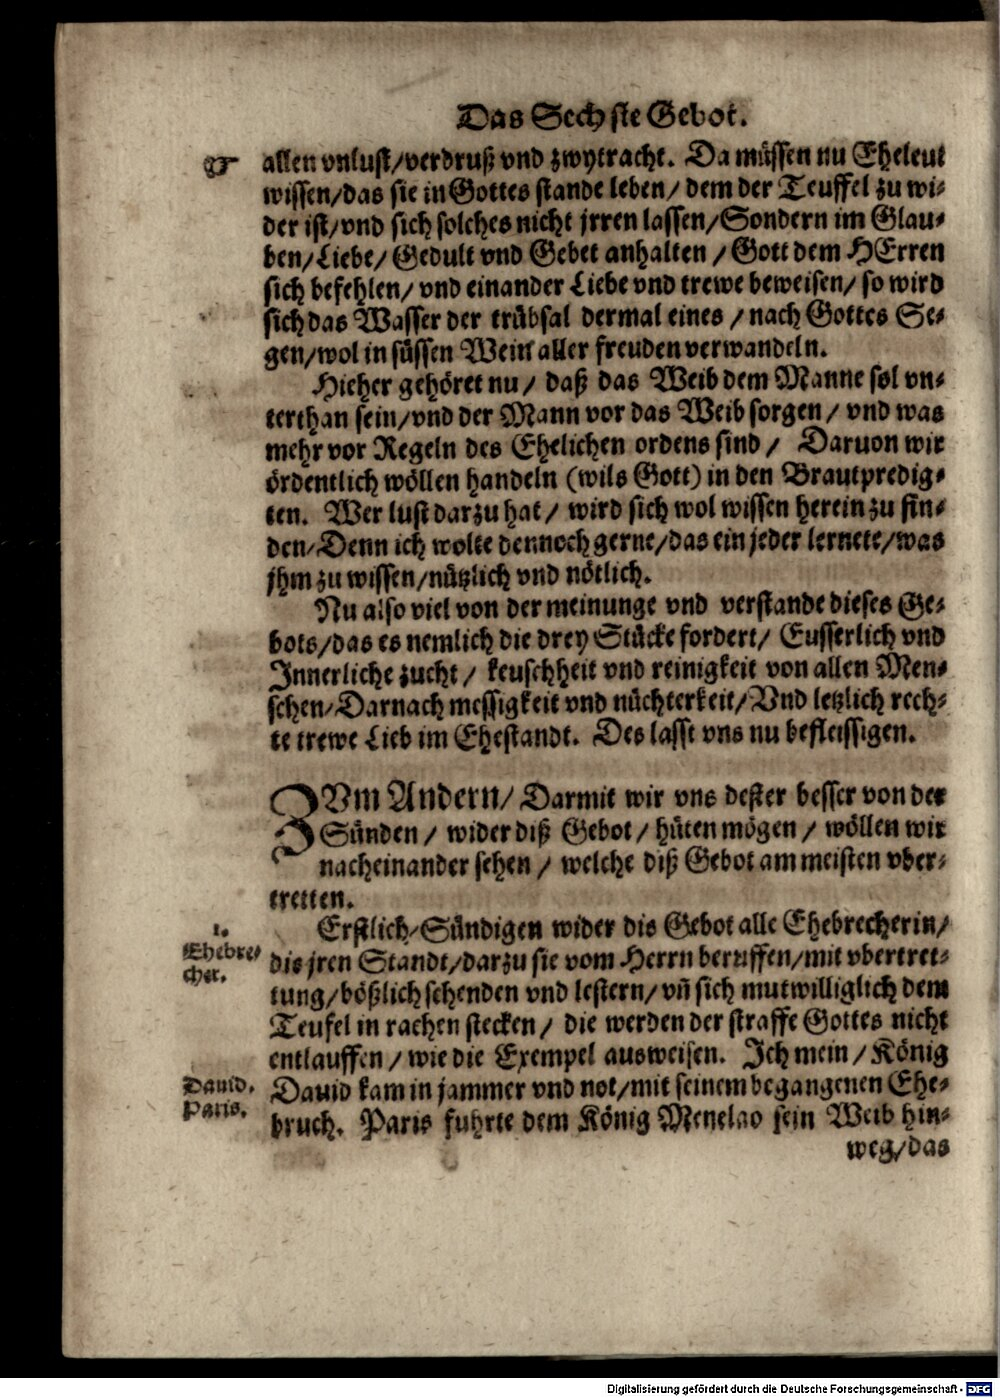 Das Sechste Gebot.
☞ allen vnlust/verdruß vnd zwytracht. Da müssen nu Eheleut
wissen/das sie in Gottes stande leben/ dem der Teuffel zu wi⸗
der ist/vnd sich solches nicht jrren lassen/Sondern im Glau⸗
ben/Liebe/ Gedult vnd Gebet anhalten / Gott dem HErren
sich befehlen/ vnd einander Liebe vnd trewe beweisen/ so wird
sich das Wasser der trübsal dermal eines / nach Gottes Se⸗
gen/wol in süssen Wein aller freuden verwandeln.
Hieher gehöret nu / daß das Weib dem Manne sol vn⸗
terthan sein/vnd der Mann vor das Weib sorgen / vnd was
mehr vor Regeln des Ehelichen ordens sind / Daruon wir
ördentlich wöllen handeln (wils Gott) in den Brautpredig⸗
ten. Wer lust darzu hat / wird sich wol wissen herein zu fin⸗
den/Denn ich wolte dennoch gerne/das ein jeder lernete/was
jhm zu wissen/nützlich vnd nötlich.
Nu also viel von der meinunge vnd verstande dieses Ge⸗
bots/das es nemlich die drey Stücke fordert/ Eusserlich vnd
Innerliche zucht / keuschheit vnd reinigkeit von allen Men⸗
schen/Darnach messigkeit vnd nüchterkeit/Vnd letzlich rech⸗
te trewe Lieb im Ehestandt. Des lasst vns nu befleissigen.
ZVm Andern/ Darmit wir vns dester besser von der
Sünden / wider diß Gebot / hüten mögen / wöllen wir
nacheinander sehen / welche diß Gebot am meisten vber⸗
tretten.
Erstlich/Sündigen wider dis Gebot alle Ehebrecherin/
1.
Ehebre⸗
cher.
die jren Standt/darzu sie vom Herrn beruffen/mit vbertret⸗
tung/bößlich schenden vnd lestern/vñ sich mutwilliglich dem
Teufel in rachen stecken / die werden der straffe Gottes nicht
entlauffen / wie die Exempel ausweisen. Ich mein / König
Dauid.
Paris.
Dauid kam in jammer vnd not/mit seinem begangenen Ehe⸗
bruch. Paris fuhrte dem König Menelao sein Weib hin⸗
weg/das
Digitalisierung gefördert durch die Deutsche Forschungsgemeinschaft - DFG